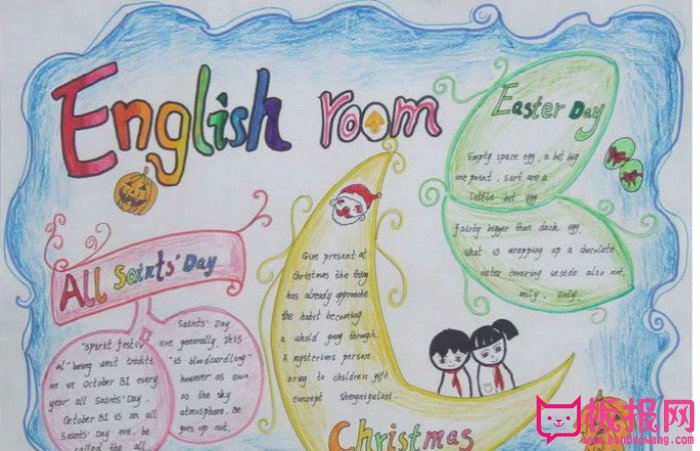 English room
Easter Day
Empty space egg, a bit big
one point, sort are a
little bit egg
fairly bigger than duck egg.
what is wrapping up a chocolate
outer covering inside also not,
only, only
All Saints' Day
"spirit festiv
al" being west traditi
on on October 31 every
year all Saints' Day.
October 31 is an all
Saints' Day eve. be
called the all
Saints' Day
eve generally, this
"is bloodcurdling"
however as soon
as the sky
atmosphere. Be
goes up not.
Give present at
Christmas the thing
has already appromite
the habit becoming
a whold going through.
A mysterious person
bring to children gift
concept Shengnigulasi.
Christmas
板报网
www.banbaowang.com